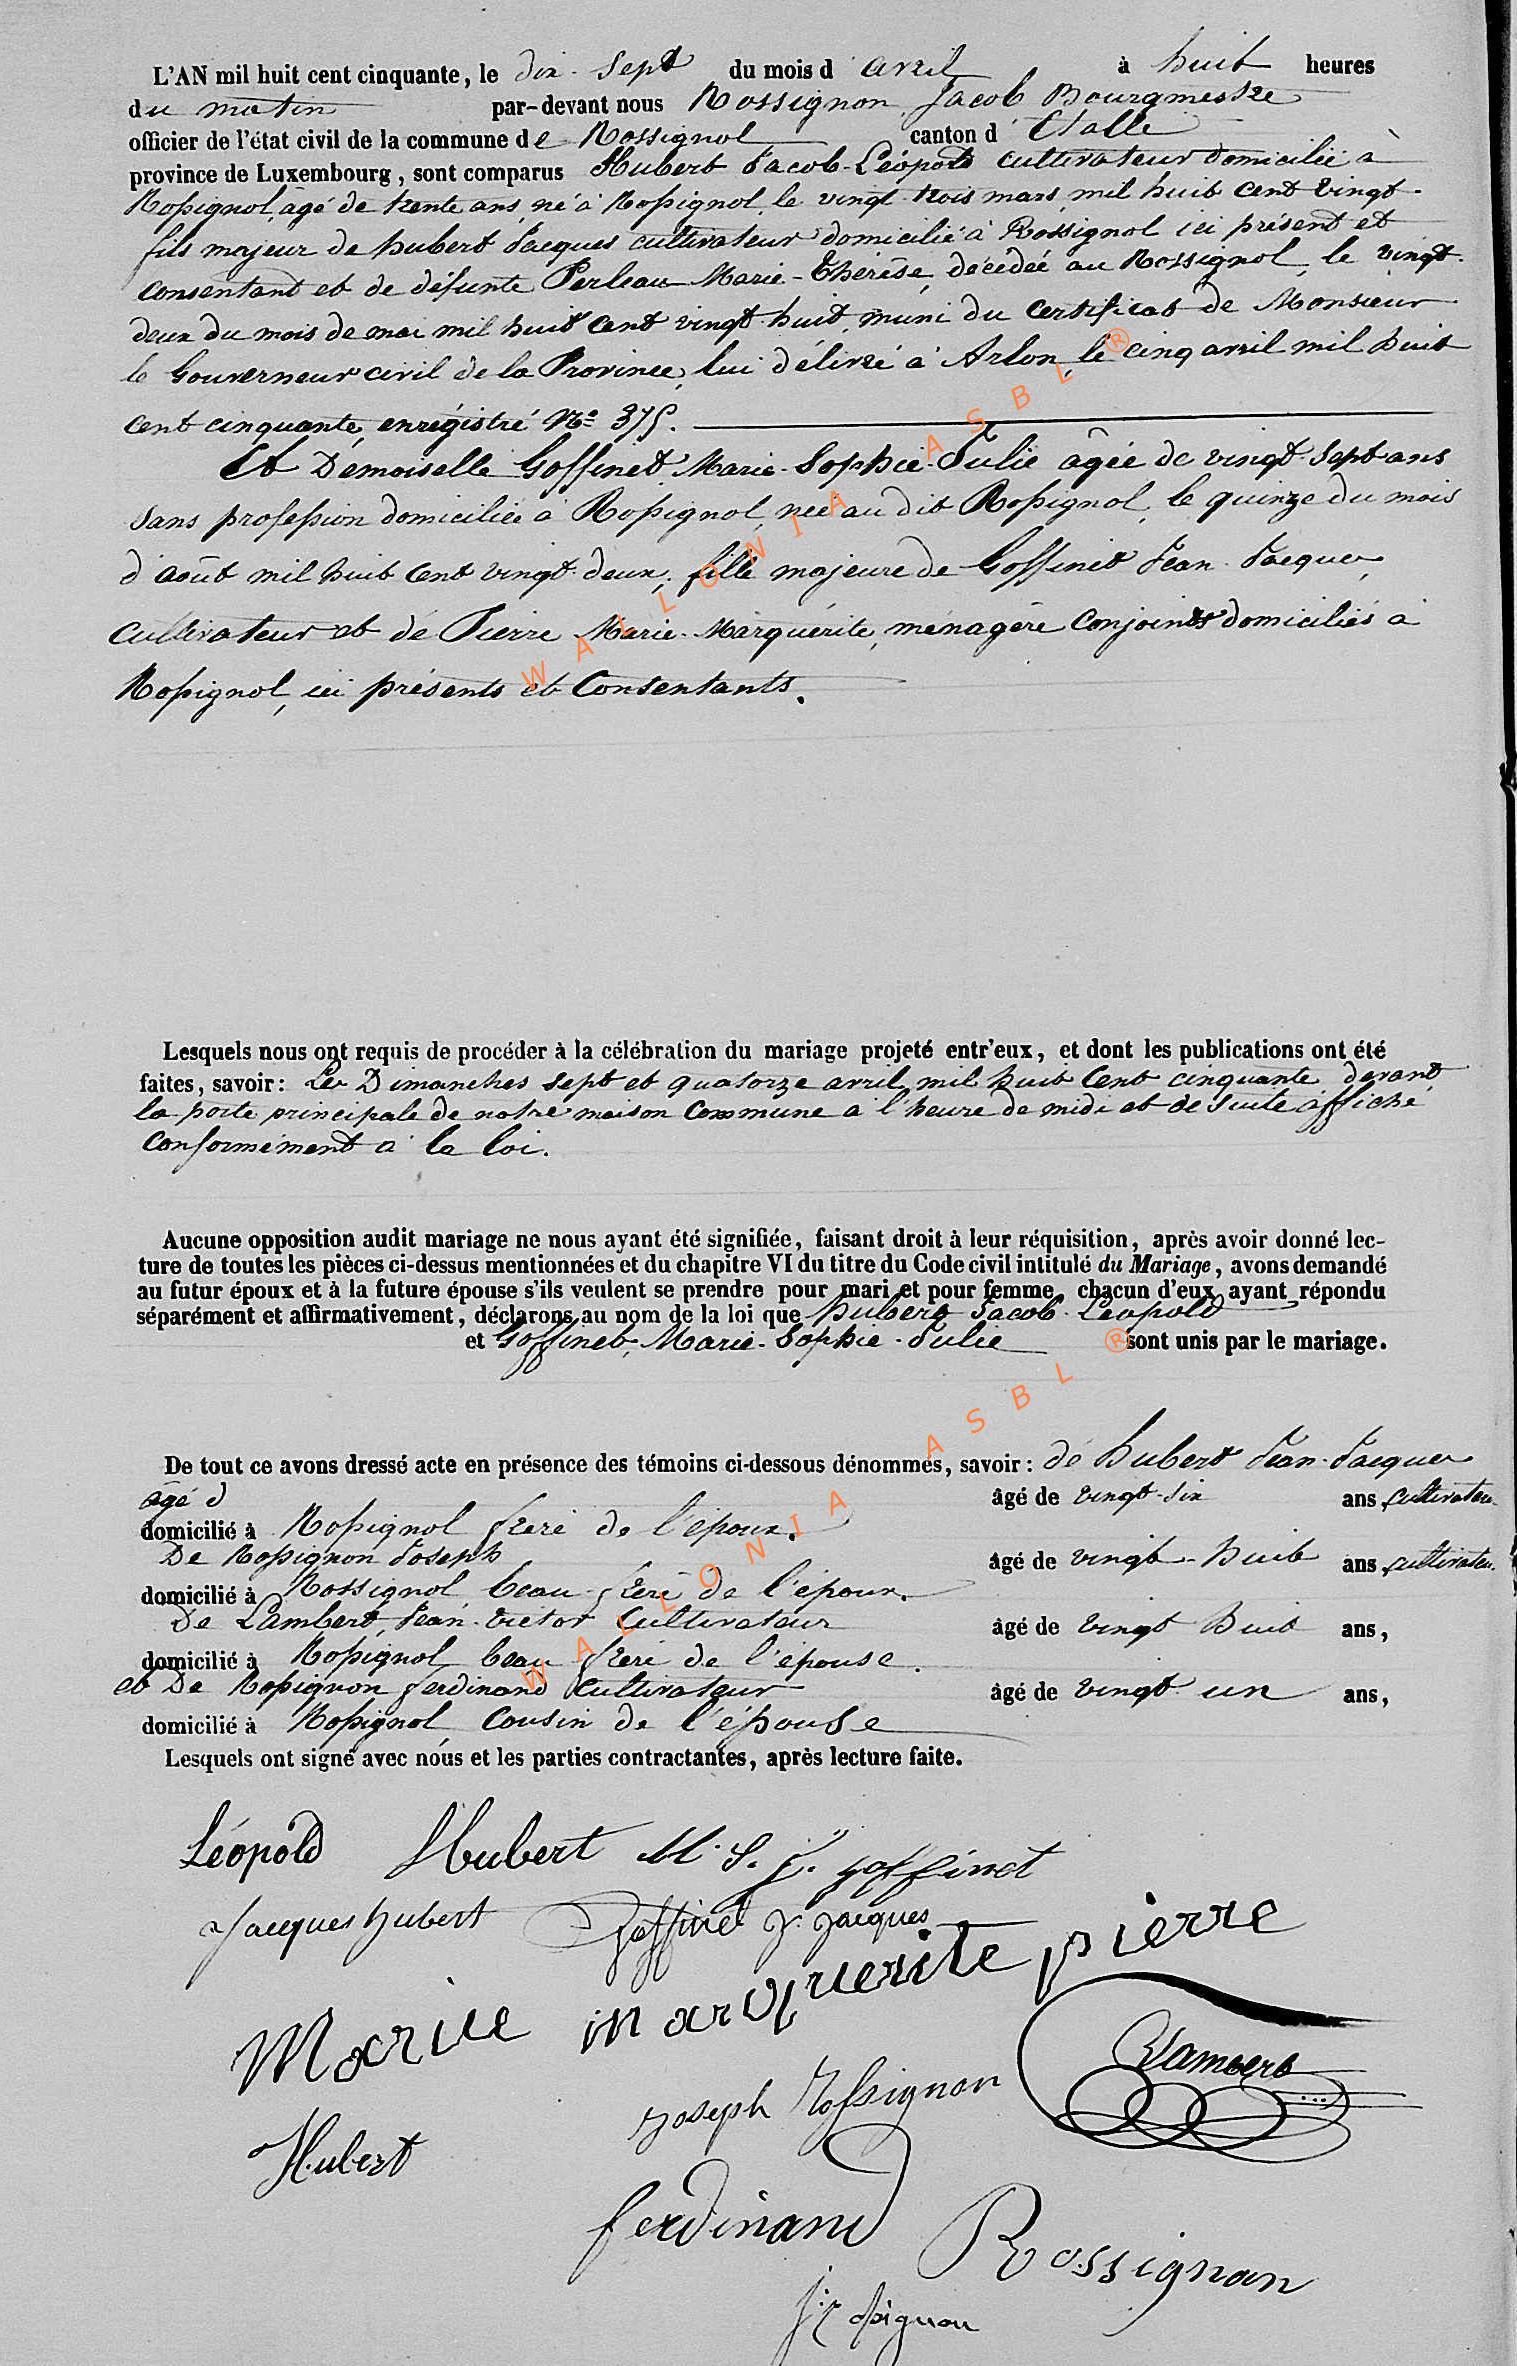 L'AN mil huit cent cinquante, le dix-sept du mois d'avril à huit heures
du matin par-devant nous Rossignon Jacob Bourgmestre
officier de l'état civil de la commune de Rossignol canton d'Etalle
province de Luxembourg, sont comparus Hubert Jacob-Léopold cultivateur domicilié à
Rossignol, âgé de trente ans, né à Rossignol, le vingt-trois mars, mil huit cent vingt.
fils majeur de hubert Jacques cultivateur domicilié à Rossignol ici présent et
consentant et de défunte Perleau Marie-Thérèse, décédée au Rossignol, le vingt-
deux du mois de mai mil huit cent vingt-huit, muni du certificat de Monsieur
le Gouverneur civil de la Province, lui délivré à Arlon, le cinq avril mil huit
cent cinquante, enrégistré N° 375.
Et Demoiselle Goffinet, Marie-Sophie-Julie âgée de vingt-sept ans
sans profession domiciliée à Rossignol, née au dit Rossignol, le quinze du mois
d'août mil huit cent vingt-deux; fille majeure de Goffinet Jean-Jacques,
cultivateur et de Pierre Marie-Marguérite, ménagère conjoints domiciliés à
Rossignol, ici présents et consentants.
Lesquels nous ont requis de procéder à la célébration du mariage projeté entr'eux, et dont les publications ont été
faites, savoir: Les Dimanches sept et quatorze avril mil huit cent cinquante devant
la porte principale de notre maison commune à l'heure de midi et de suite affiché
conformément à la loi.
Aucune opposition audit mariage ne nous ayant été signifiée, faisant droit à leur réquisition, après avoir donné lec-
ture de toutes les pièces ci-dessus mentionnées et du chapitre VI du titre du Code civil intitulé du Mariage, avons demandé
au futur époux et à la future épouse s'ils veulent se prendre pour mari et pour femme, chacun d'eux ayant répondu
séparément et affirmativement, déclarons au nom de la loi que hubert Jacob-Léopold
et Goffinet, Marie-Sophie-Julie sont unis par le mariage.
De tout ce avons dressé acte en présence des témoins ci-dessous dénommés, savoir: de hubert Jean-Jacques
âgé d âgé de vingt-six ans, cultivateur
domicilié à Rossignol frère de l'époux.
De Rossignon Joseph âgé de vingt-huit ans, cultivateur.
domicilié à Rossignol beau-frère de l'époux.
De Lambert, Jean-Victor Cultivateur âgé de vingt huit ans,
domicilié à Rossignol beau frère de l'épouse.
et De Rossignon ferdinand Cultivateur âgé de vingt-un ans,
domicilié à Rossignol cousin de l'épouse
Lesquels ont signé avec nous et les parties contractantes, après lecture faite.
Léopold Hubert M. S. J. goffinet
Jacques hubert Goffinet J. Jacques
Marie marguerite pierre
Lambert
Joseph Rossignon
Hubert
ferdinand Rossignon
J. Rossignon
WALLONIA ASBL ®
WALLONIA ASBL ®